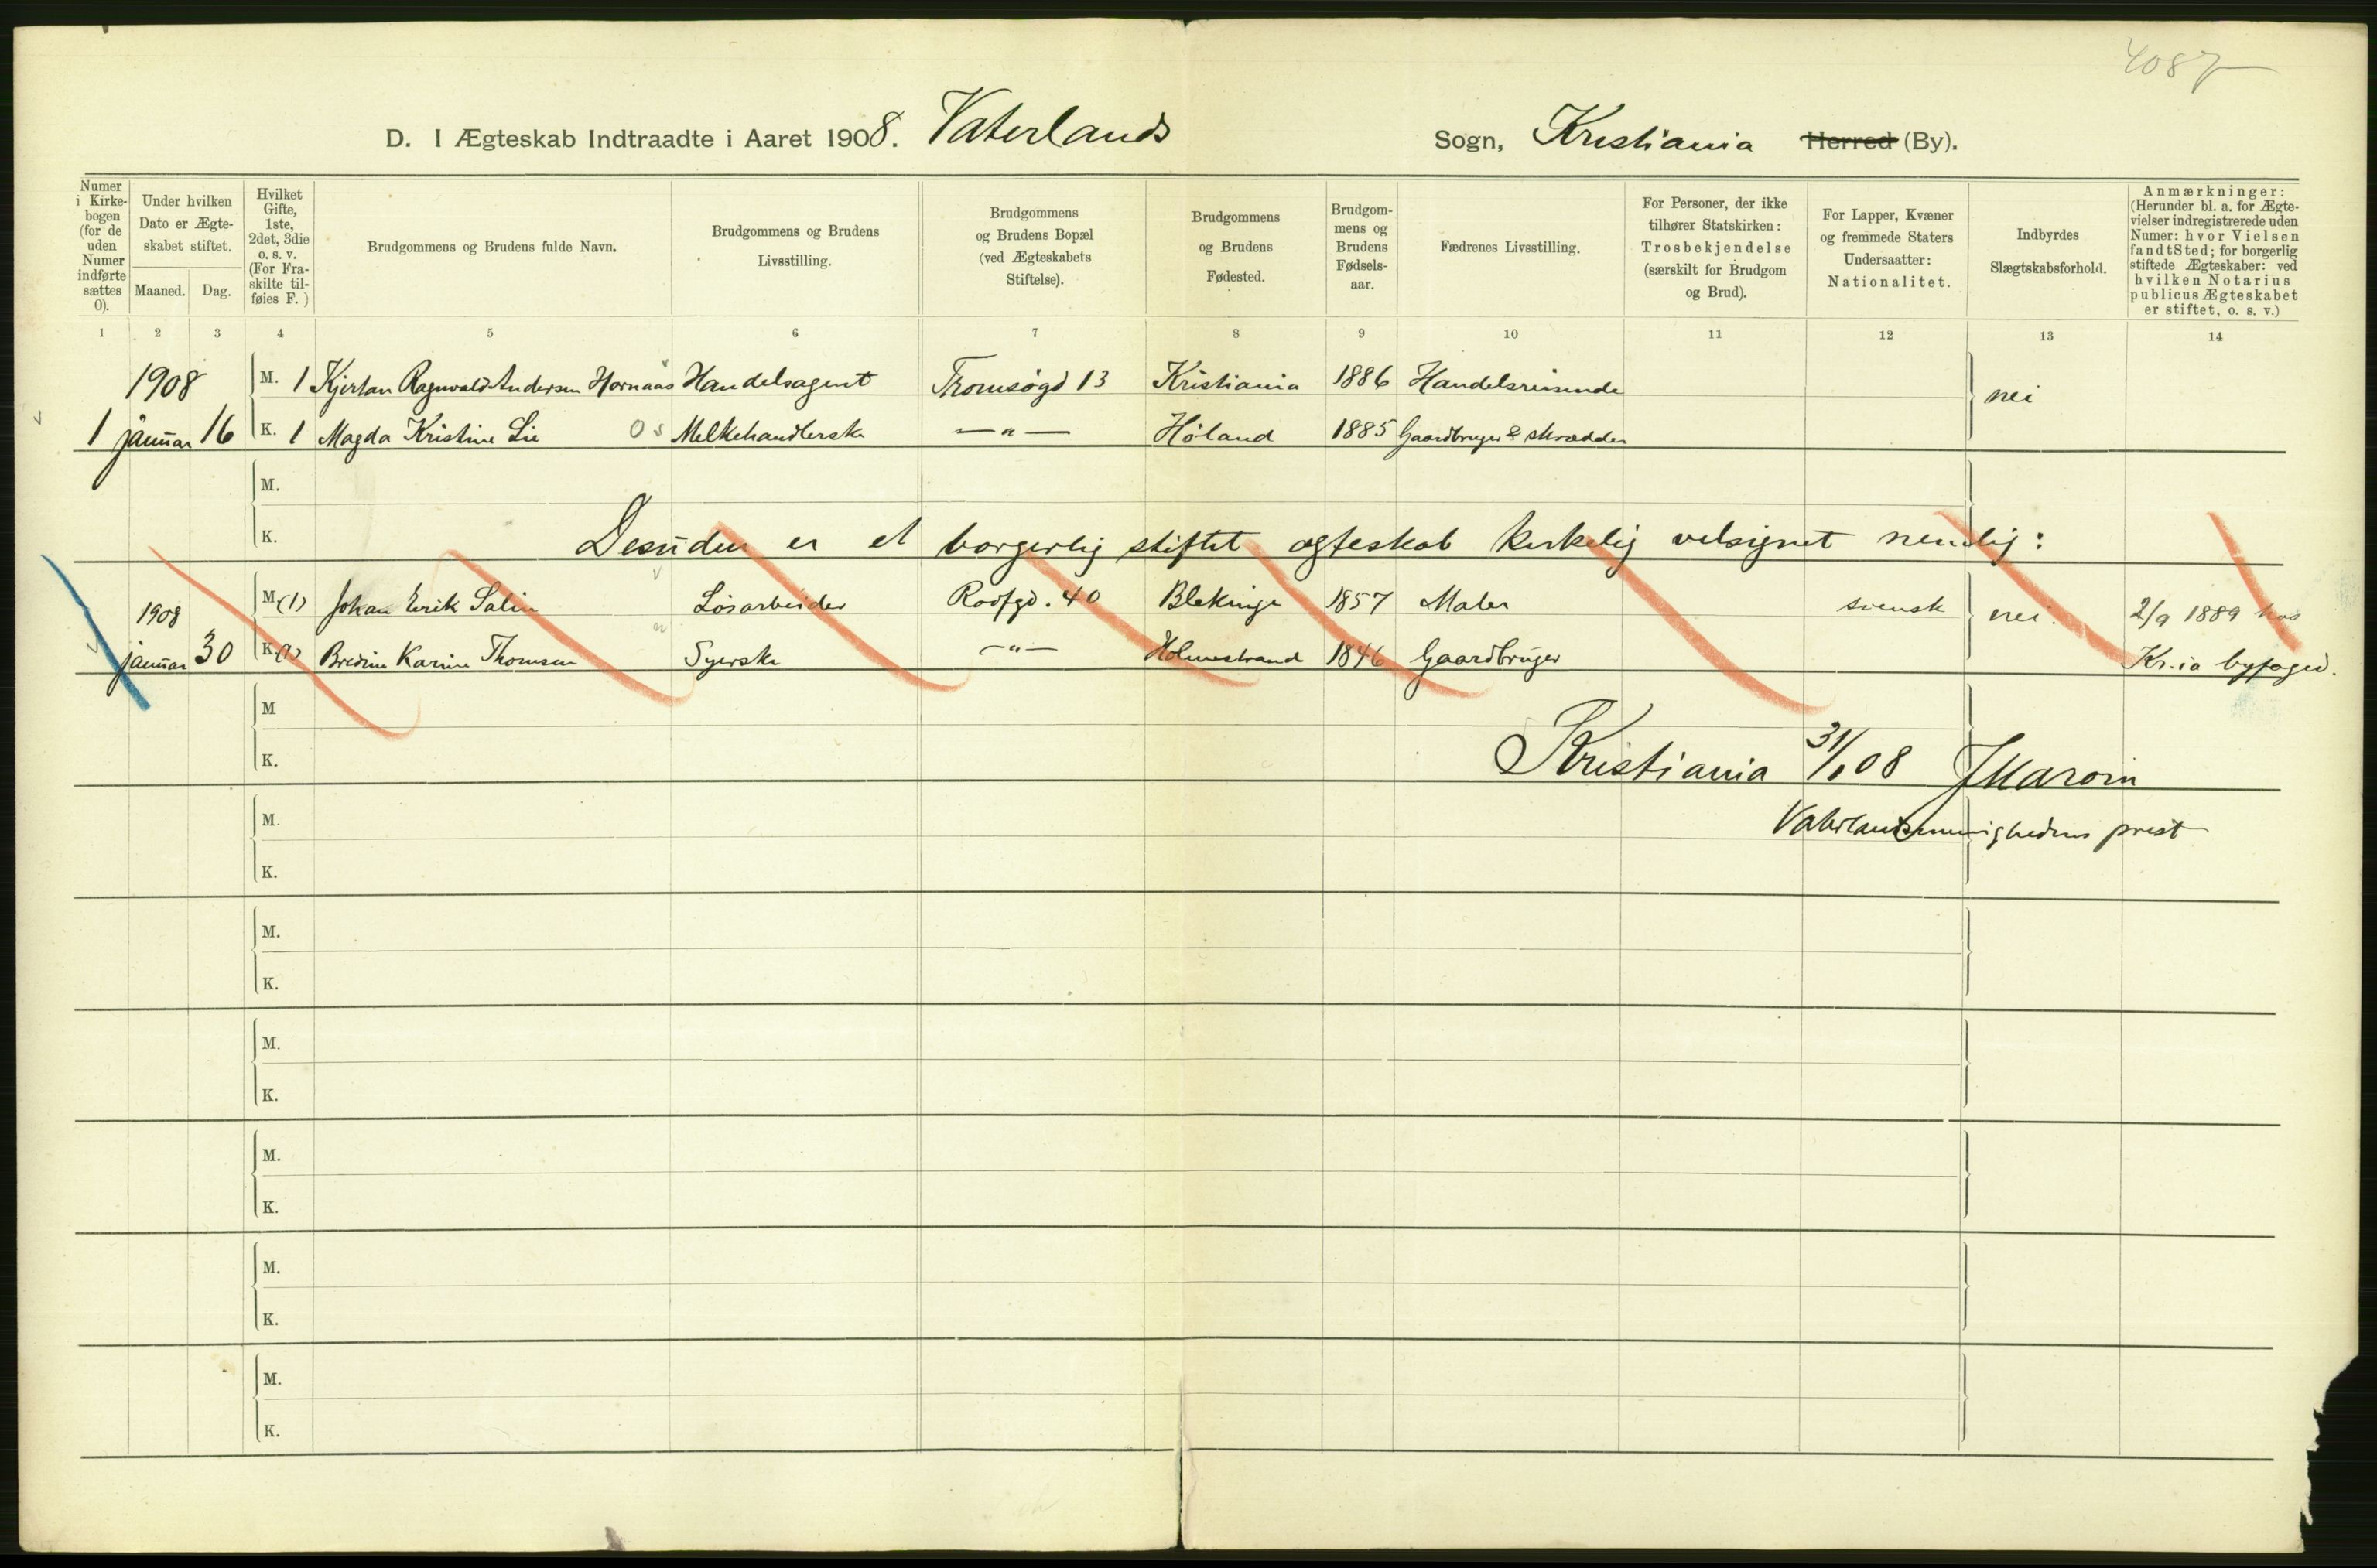 4087
D. I Ægteskab Indtraadte i Aaret 1908. Vaterlands Sogn, Kristiania Herred (By).
Numer i Kirke-bogen (for de uden Numer indførte sættes 0).
Under hvilken Dato er Ægte-skabet stiftet.
Maaned. Dag.
Hvilket Gifte, 1ste, 2det, 3die o. s. v. (For Fra-skilte til-føies F.)
Brudgommens og Brudens fulde Navn.
Brudgommens og Brudens Livsstilling.
Brudgommens og Brudens Bopæl (ved Ægteskabets Stiftelse).
Brudgommens og Brudens Fødested.
Brudgom-mens og Brudens Fødsels-aar.
Fædrenes Livsstilling.
For Personer, der ikke tilhører Statskirken: Trosbekjendelse (særskilt for Brudgom og Brud).
For Lapper, Kvæner og fremmede Staters Undersaatter: Nationalitet.
Indbyrdes Slægtskabsforhold.
Anmærkninger: (Herunder bl. a. for Ægte-vielser indregistrerede uden Numer: hvor Vielsen fandt Sted; for borgerlig stiftede Ægteskaber: ved hvilken Notarius publicus Ægteskabet er stiftet, o. s. v.)
1 2 3 4 5 6 7 8 9 10 11 12 13 14
1908 M. 1 Kjertan Ragnvald Andersen Hornaas Handelsagent Tromsøgd 13 Kristiania 1886 Handelsreisende nei
1 januar 16 K. 1 Magda Kristine Lie 0 s Melkehandlerske —"— Høland 1885 Gaardbruger & skrædder
M.
K. Desuden er et borgerlig stiftet egteskab kirkelig velsignet nemlig:
1908 M (1) Johan Erik Salin Løsarbeider Roofgd. 40 Blekinge 1857 Maler svensk nei. 2/9 1889 hos
januar 30 K. (1) Bredine Karine Thomsen Syerske —"— Holmestrand 1846 Gaardbruger Kr.ia byfoged.
M
K. Kristiania 31/1 08 J Maroin
M. Vaterlandsmenighedens prest
K.
M.
K.
M.
K.
M.
K.
M.
K.
M.
K.